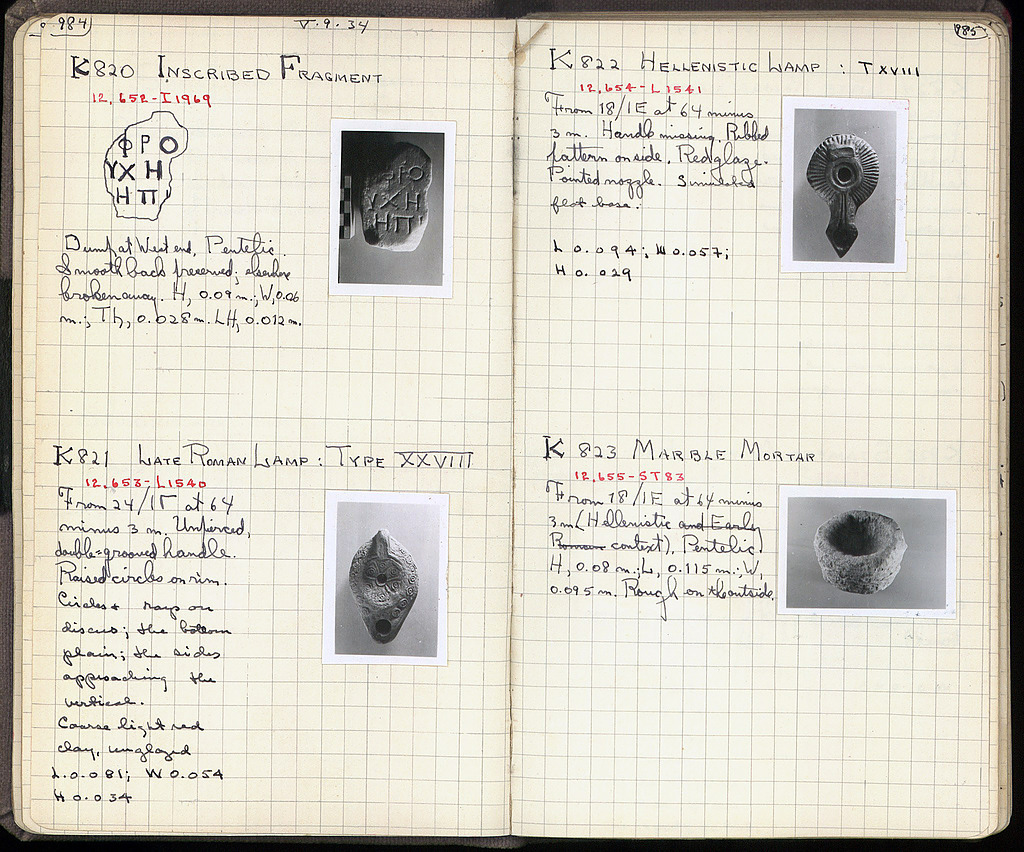 984
V.9.34
K820 INSCRIBED FRAGMENT
12,652-I1969
ΦΡΟ
ΥΧΗ
ΗΠ
Dump at West end, Pentelic.
Smooth back preserved; elsewhere
broken away. H, 0.09 m.; W, 0.06
m.; Th, 0.028 m. LH, 0.012 m.
K821 LATE ROMAN LAMP: TYPE XXVIII
12,653-L1540
From 24/ΙΓ at 64
minus 3 m. Unpierced,
double-grooved handle.
Raised circles on rim.
Circles + rays on
discus; the bottom
plain; the sides
approaching the
vertical.
Coarse light red
clay, unglazed
L.0.081; W 0.054
H 0.034
985
K822 HELLENISTIC LAMP: TXVIII
12,654-L1541
From 18/ΙΕ at 64 minus
3 m. Handle missing. Ribbed
pattern on side. Red glaze.
Pointed nozzle. Simulated
flat base.
L 0.094; W 0.057;
H 0.029
K 823 MARBLE MORTAR
12,655-ST83
From 18/ΙΕ at 64 minus
3m (Hellenistic and Early
Roman context), Pentelic.
H, 0.08 m.; L, 0.115 m.; W,
0.095 m. Rough on the outside.